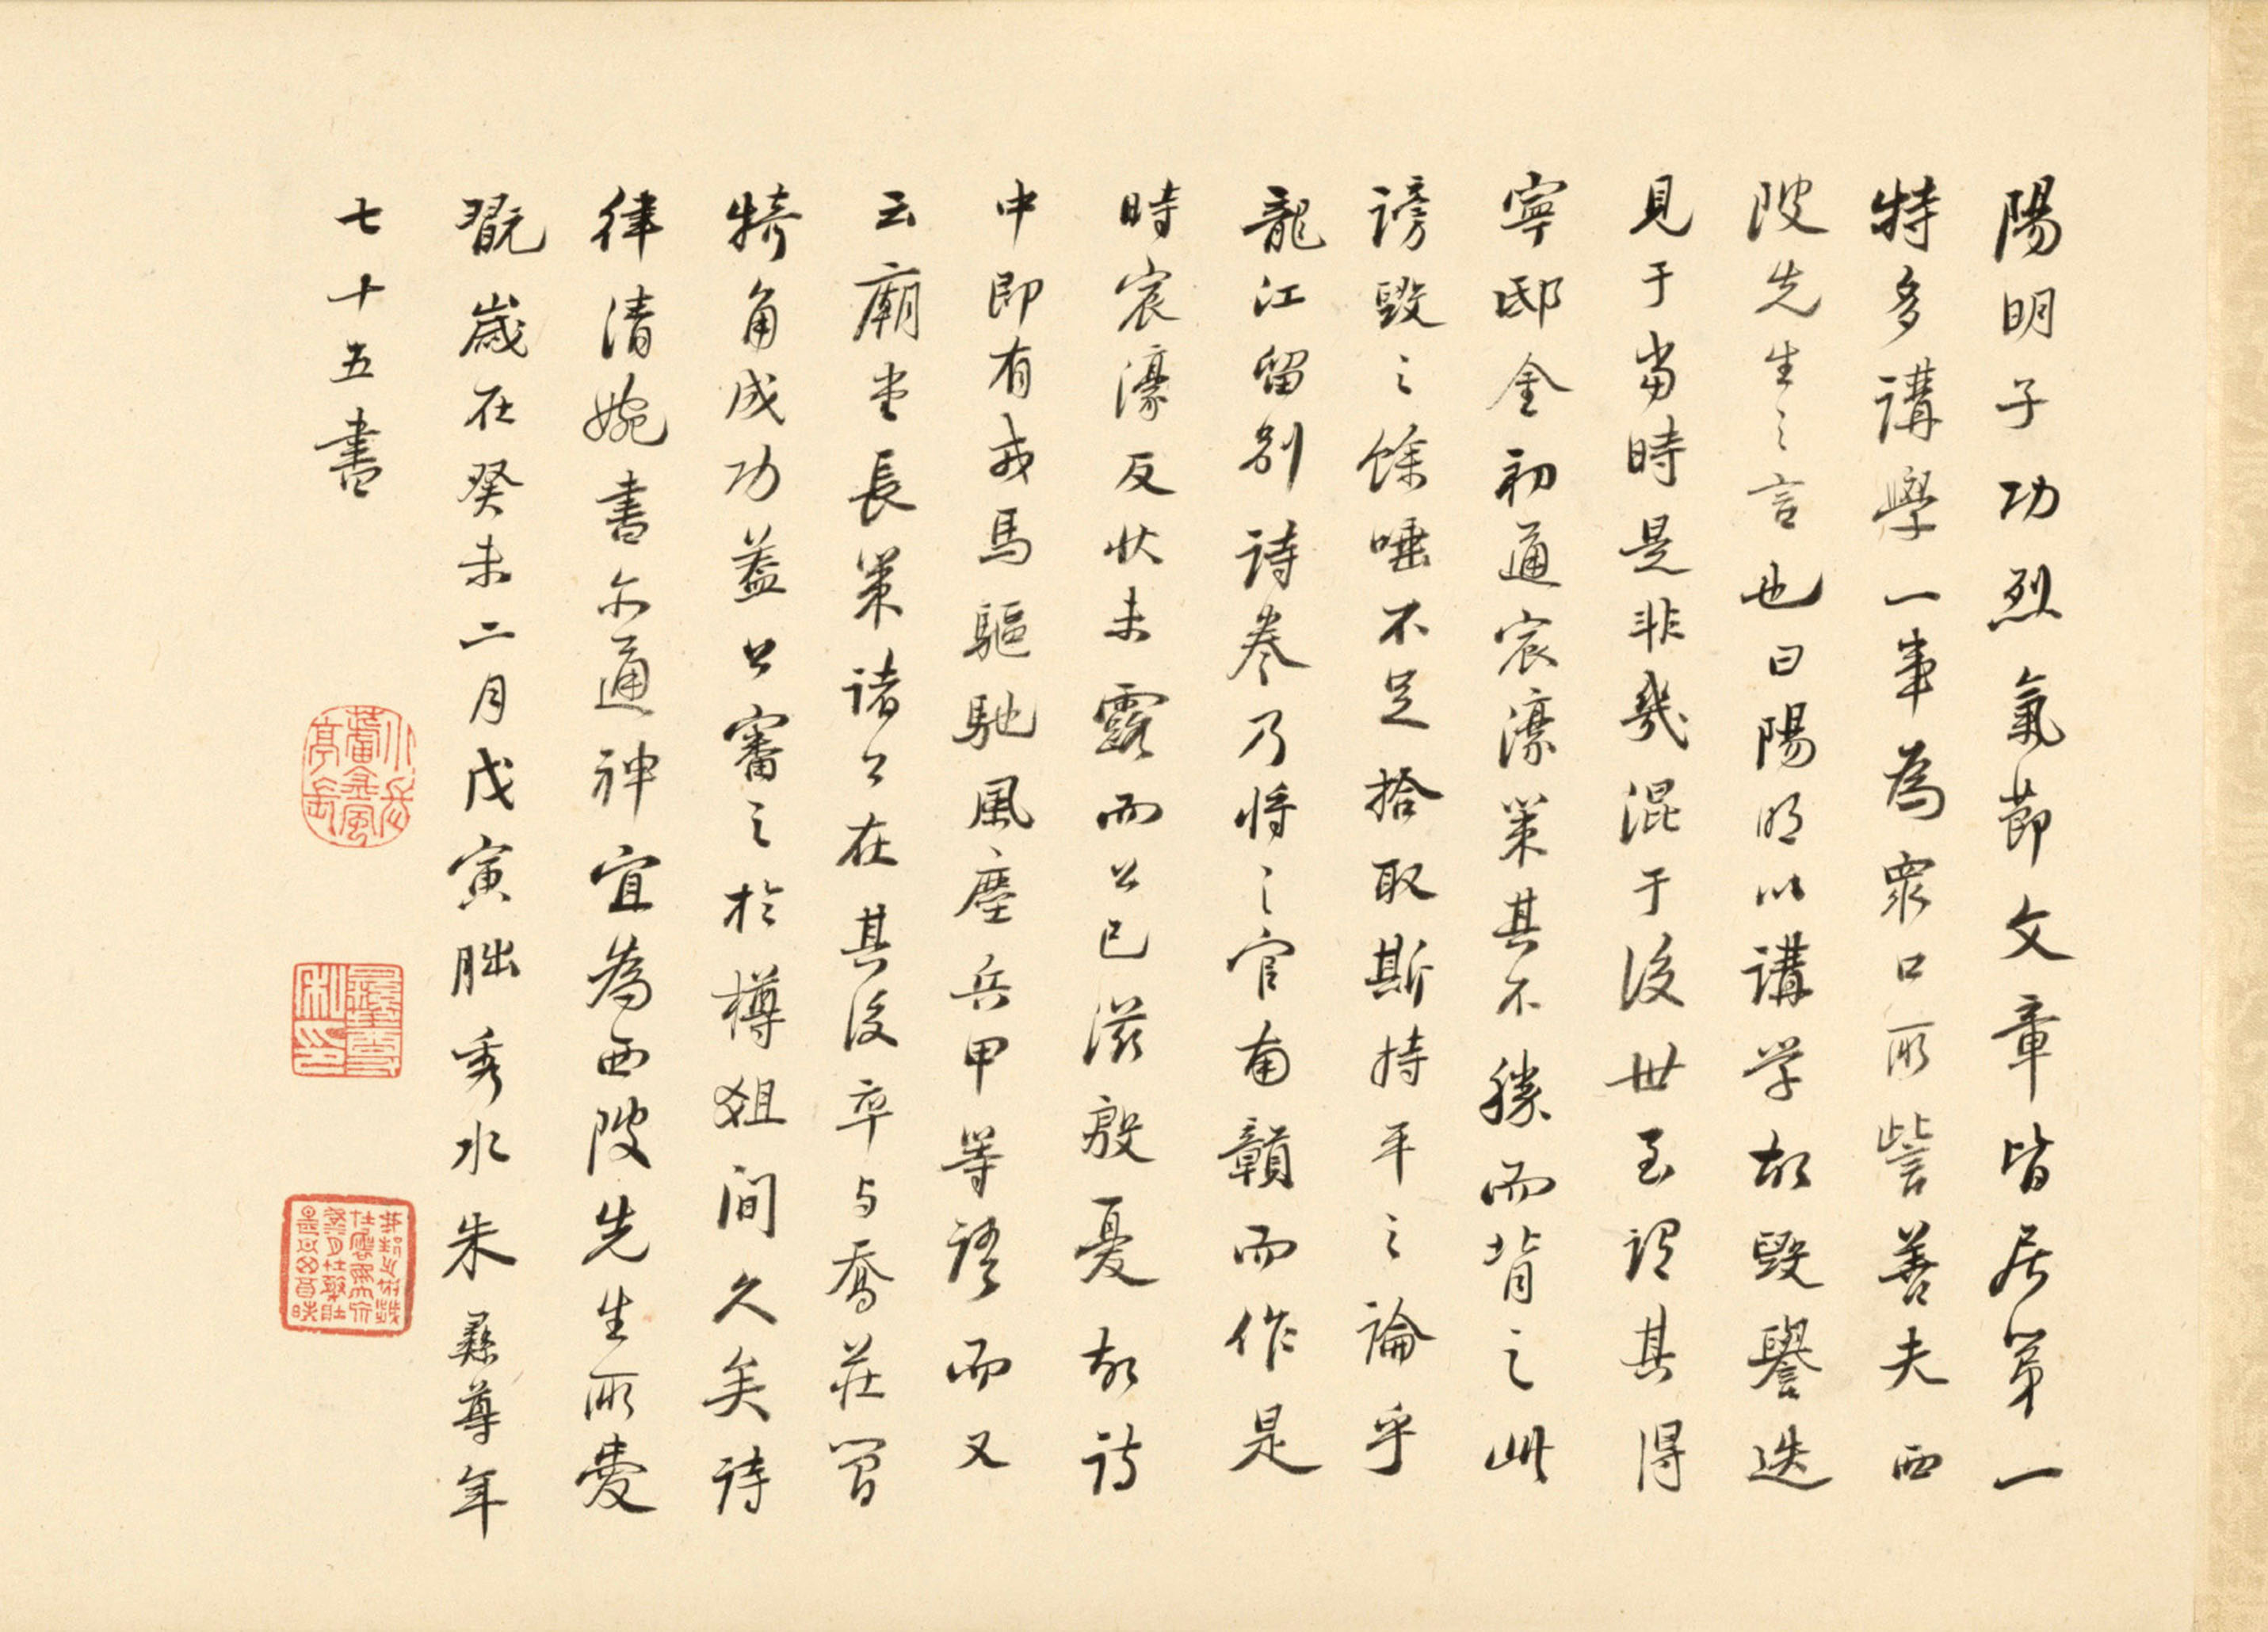 陽明子功烈氣節文章皆居第一
特多講學一事為眾口所訾善夫西
陂先生之言也曰陽明以講学故毀譽迭
見于當時是非幾混于後世至謂其得
寧邸金初通宸濠策其不勝而背之此
謗毀之餘唾不足拾取斯持平之論乎
龍江留別詩卷乃將之官南贛而作是
時宸濠反狀未露而公已滋殷憂故詩
中即有戎馬驅馳風塵兵甲等語而又
云廟堂長策諸公在其後卒与喬莊簡
犄角成功蓋公審之於樽俎間久矣詩
律清婉書亦通神宜為西陂先生所愛
翫歲在癸未二月戊寅朏秀水朱彝尊年
七十五書